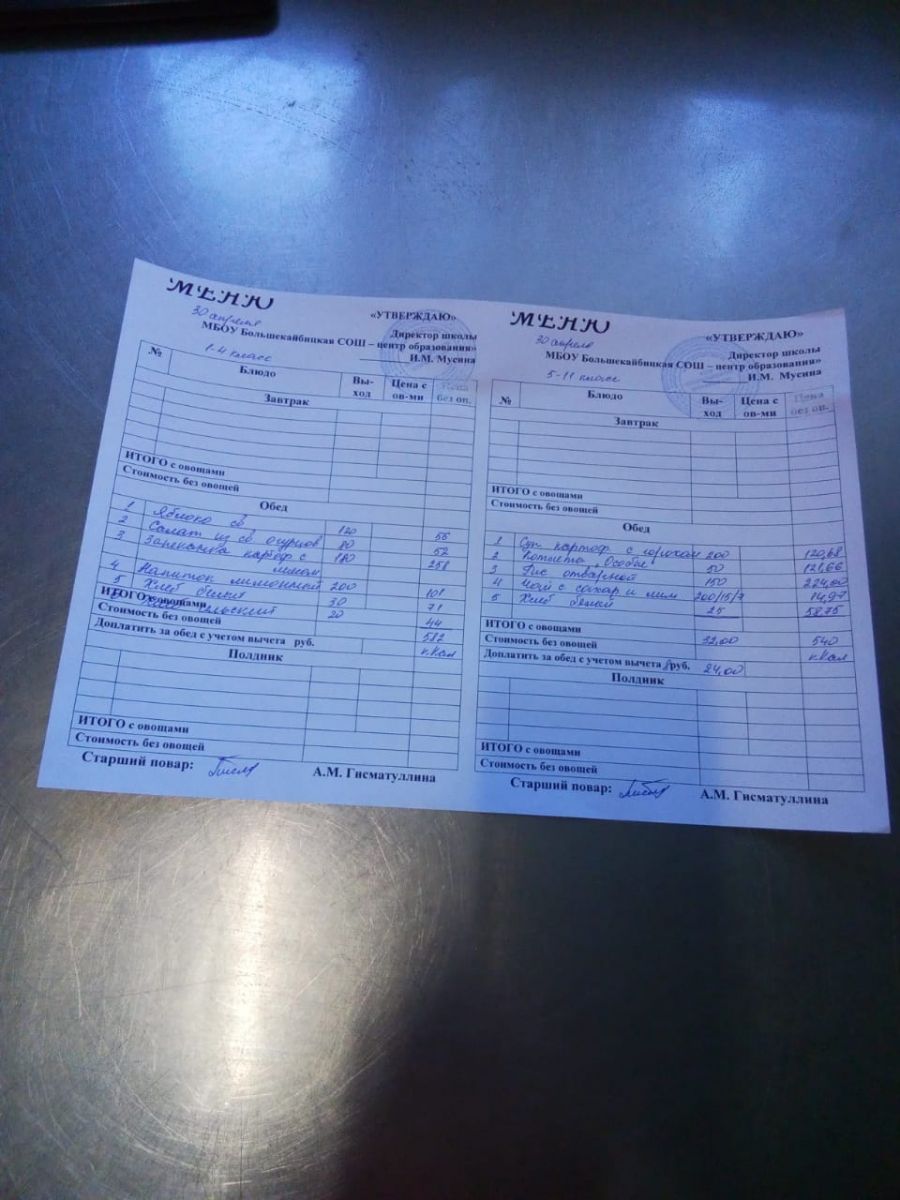 МЕНЮ
30 апреля
«УТВЕРЖДАЮ»
Директор школы
МБОУ Большекайбицкая СОШ – центр образования»
И.М. Мусина
1-4 класс
№ Блюдо Вы-ход Цена с ов-ми Цена без ов.
Завтрак
ИТОГО с овощами
Стоимость без овощей
Обед
1 Яблоко св 120 56
2 Салат из св. огурцов 80 52
3 Запеканка картоф с 180 258
мясом
4 Напиток лимонный 200 101
5 Хлеб белый 30 71
ИТОГО с овощами 20 44
Стоимость без овощей 582
Доплатить за обед с учетом вычета руб. кКал
Полдник
ИТОГО с овощами
Стоимость без овощей
Старший повар: А.М. Гисматуллина
МЕНЮ
30 апреля
«УТВЕРЖДАЮ»
Директор школы
МБОУ Большекайбицкая СОШ – центр образования»
И.М. Мусина
5-11 класс
№ Блюдо Вы-ход Цена с ов-ми Цена без ов.
Завтрак
ИТОГО с овощами
Стоимость без овощей
Обед
1 Суп картоф. с горохом 200 120,68
2 Котлета Особая 50 121,66
3 Рис отварной 150 224,00
4 Чай с сахар и лим 200/15/7 14,97
5 Хлеб белый 25 58,75
ИТОГО с овощами
Стоимость без овощей 32,00 540
Доплатить за обед с учетом вычета руб. 24,00 кКал
Полдник
ИТОГО с овощами
Стоимость без овощей
Старший повар: А.М. Гисматуллина